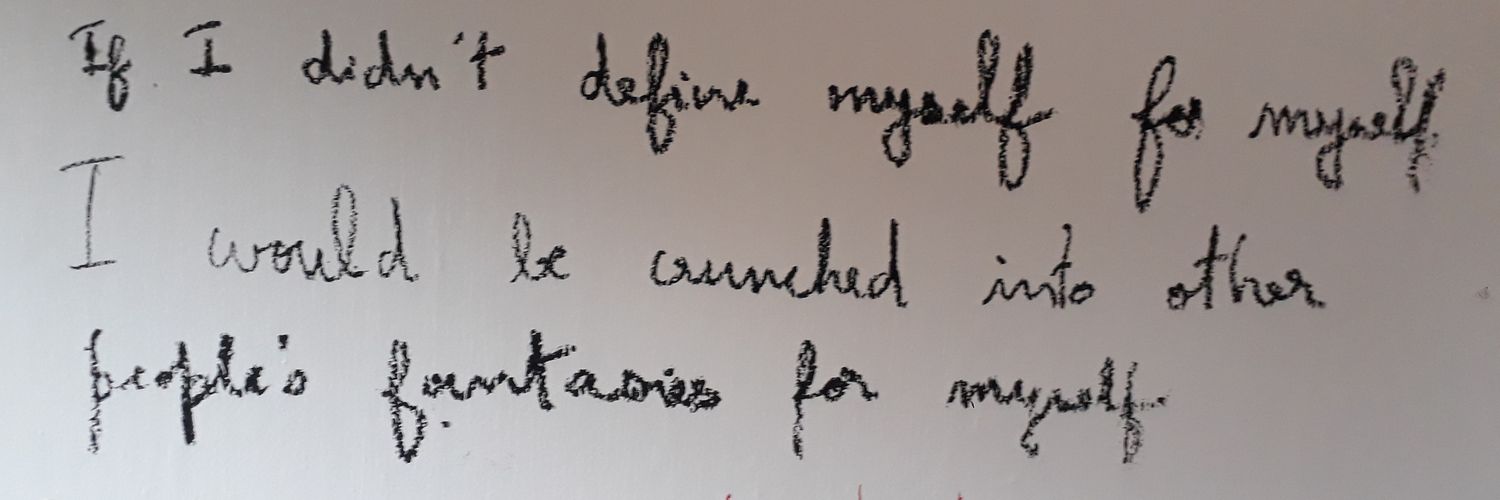 If I didn't define myself for myself
I would be crunched into other
people's fantasies for myself